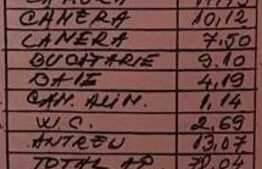 CAMERA 10,12
CAMERA 7.50
BUCATARIE 9.10
BAIE 4,19
CAM. ALIM. 1,14
W.C. 2,69
ANTREU 13,07
TOTAL AP.